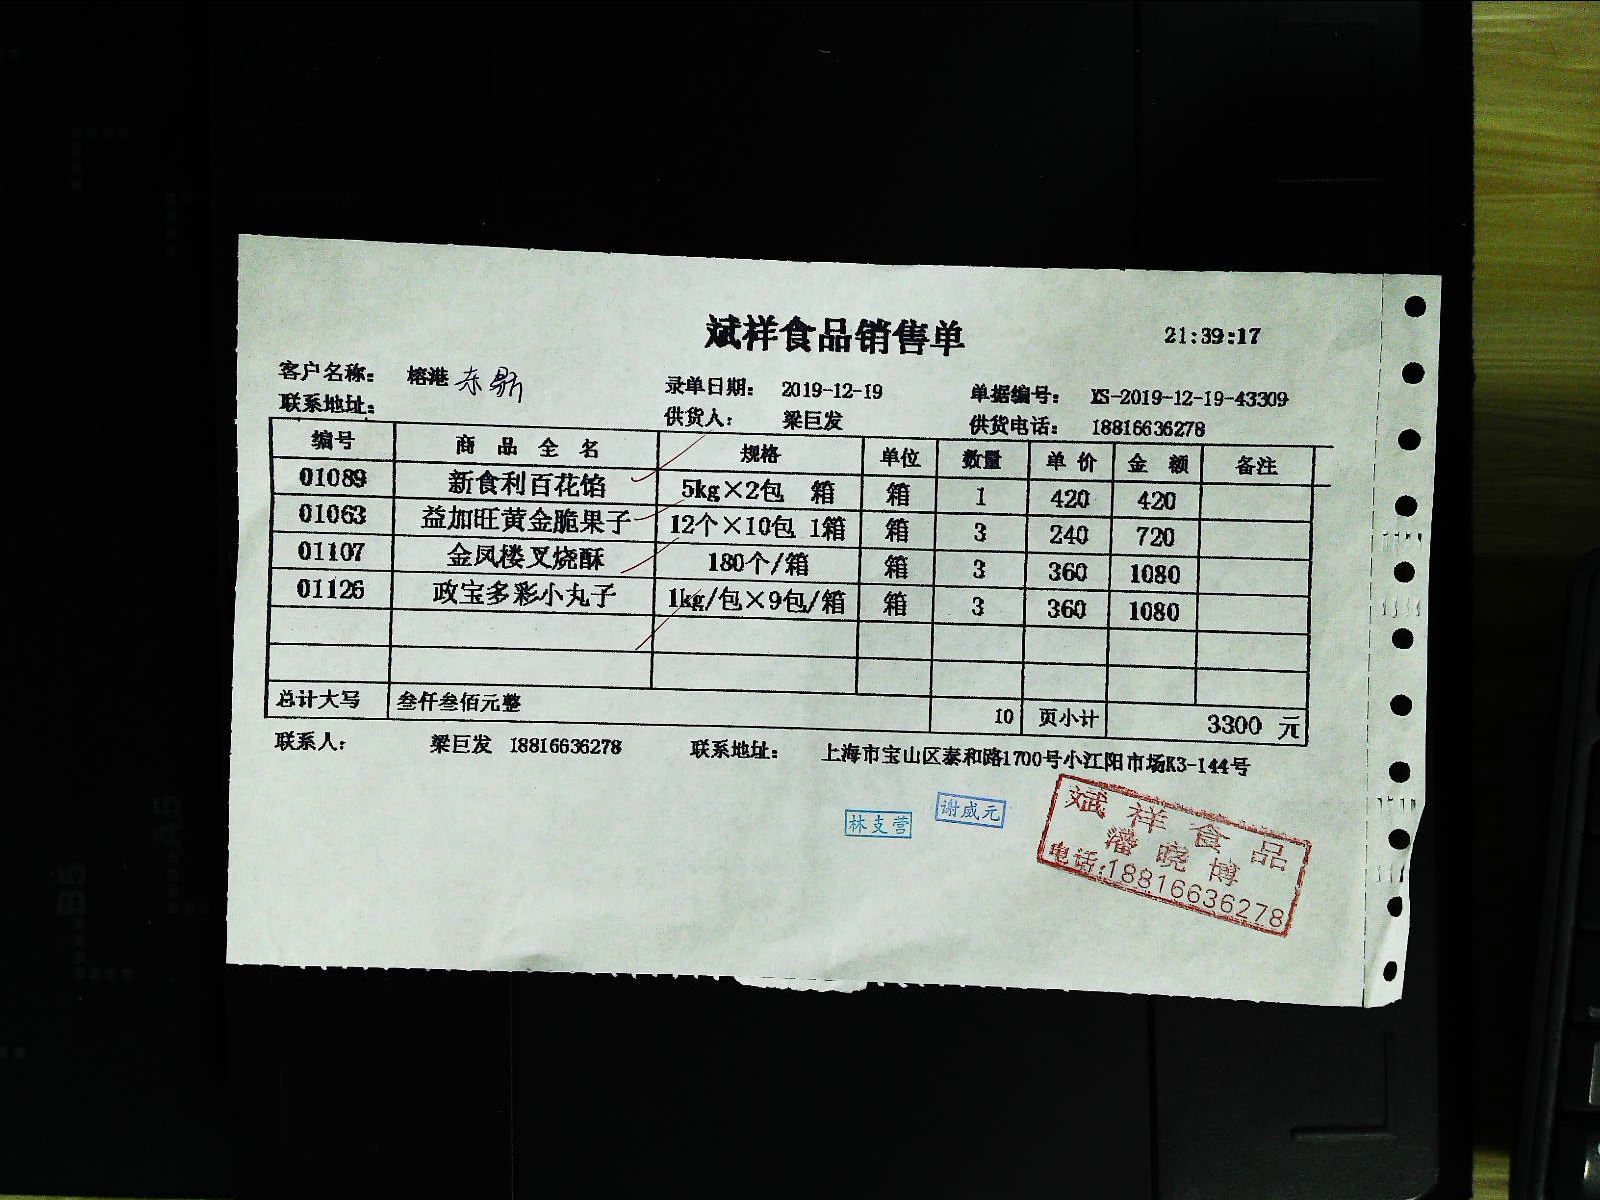 斌祥食品销售单 21:39:17
客户名称： 榕港 东鼎 录单日期： 2019-12-19 单据编号： XS-2019-12-19-43309
联系地址： 供货人： 梁巨发 供货电话： 18816636278
编号 商品全名 规格 单位 数量 单价 金额 备注
01089 新食利百花馅 5kg×2包 箱 箱 1 420 420
01063 益加旺黄金脆果子 12个×10包 1箱 箱 3 240 720
01107 金凤楼叉烧酥 180个/箱 箱 3 360 1080
01126 政宝多彩小丸子 1kg/包×9包/箱 箱 3 360 1080
总计大写 叁仟叁佰元整 10 页小计 3300 元
联系人： 梁巨发 18816636278 联系地址： 上海市宝山区泰和路1700号小江阳市场K3-144号
林支营 谢威元
斌祥食品
潘晓博
电话:18816636278
B5
A5